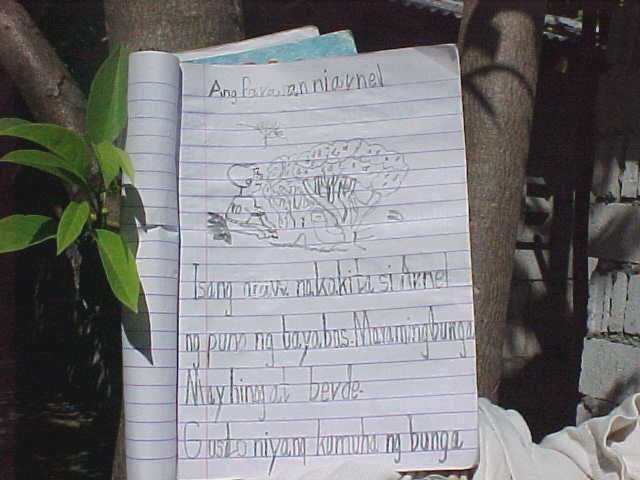 Ang larawan ni arnel
Isang araw nakakita si Arnel
ng puno ng bayabas. Maraming bunga
May hinog at berde.
Gusto niyang kumuha ng bunga